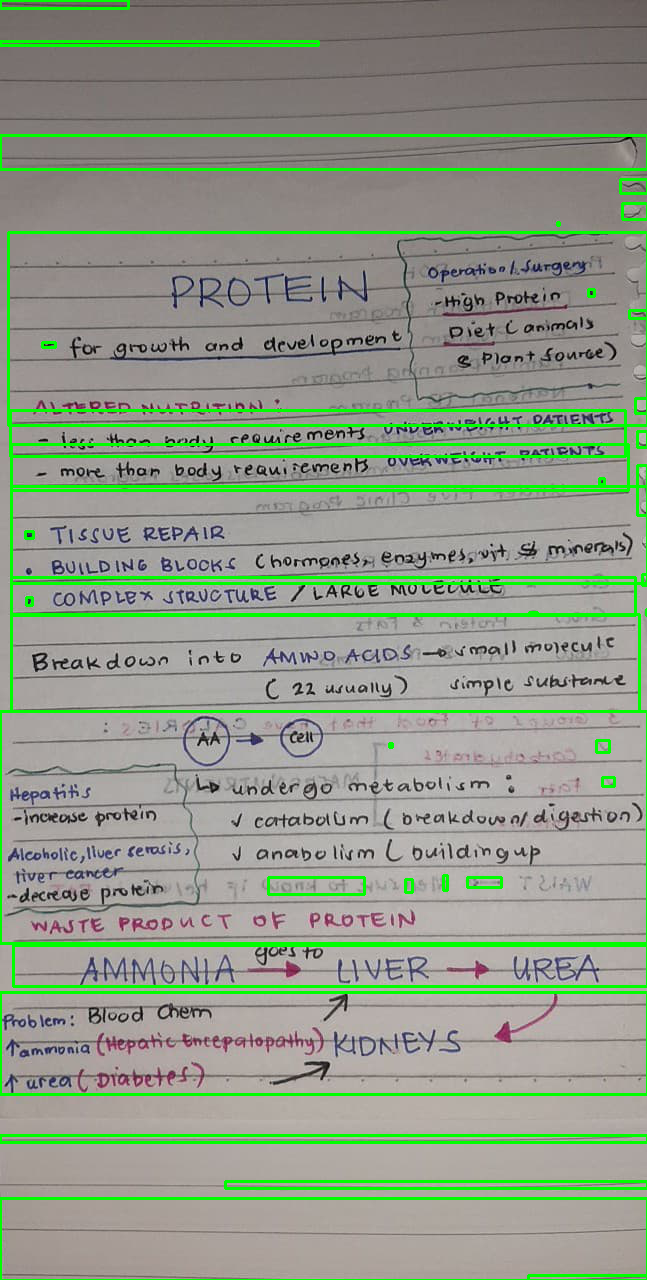 PROTEIN
- for growth and development
Operation/Surgery
-High Protein
Diet (animals
& Plant Source)
ALTERED NUTRITION:
- less than body requirements UNDERWEIGHT PATIENTS
- more than body requirements OVERWEIGHT PATIENTS
• TISSUE REPAIR
• BUILDING BLOCKS (hormones, enzymes, vit & minerals)
• COMPLEX STRUCTURE / LARGE MOLECULE
Breakdown into AMINO ACIDS → small molecule
(22 usually) simple substance
AA → Cell
↳ undergo metabolism:
✓ catabolism (breakdown/digestion)
✓ anabolism (building up
Hepatitis
-increase protein
Alcoholic, liver serosis,
liver cancer
-decrease protein
WASTE PRODUCT OF PROTEIN
AMMONIA goes to → LIVER → UREA
KIDNEYS
Problem: Blood Chem
↑ammonia (Hepatic Encepalopathy)
↑ urea (Diabetes)